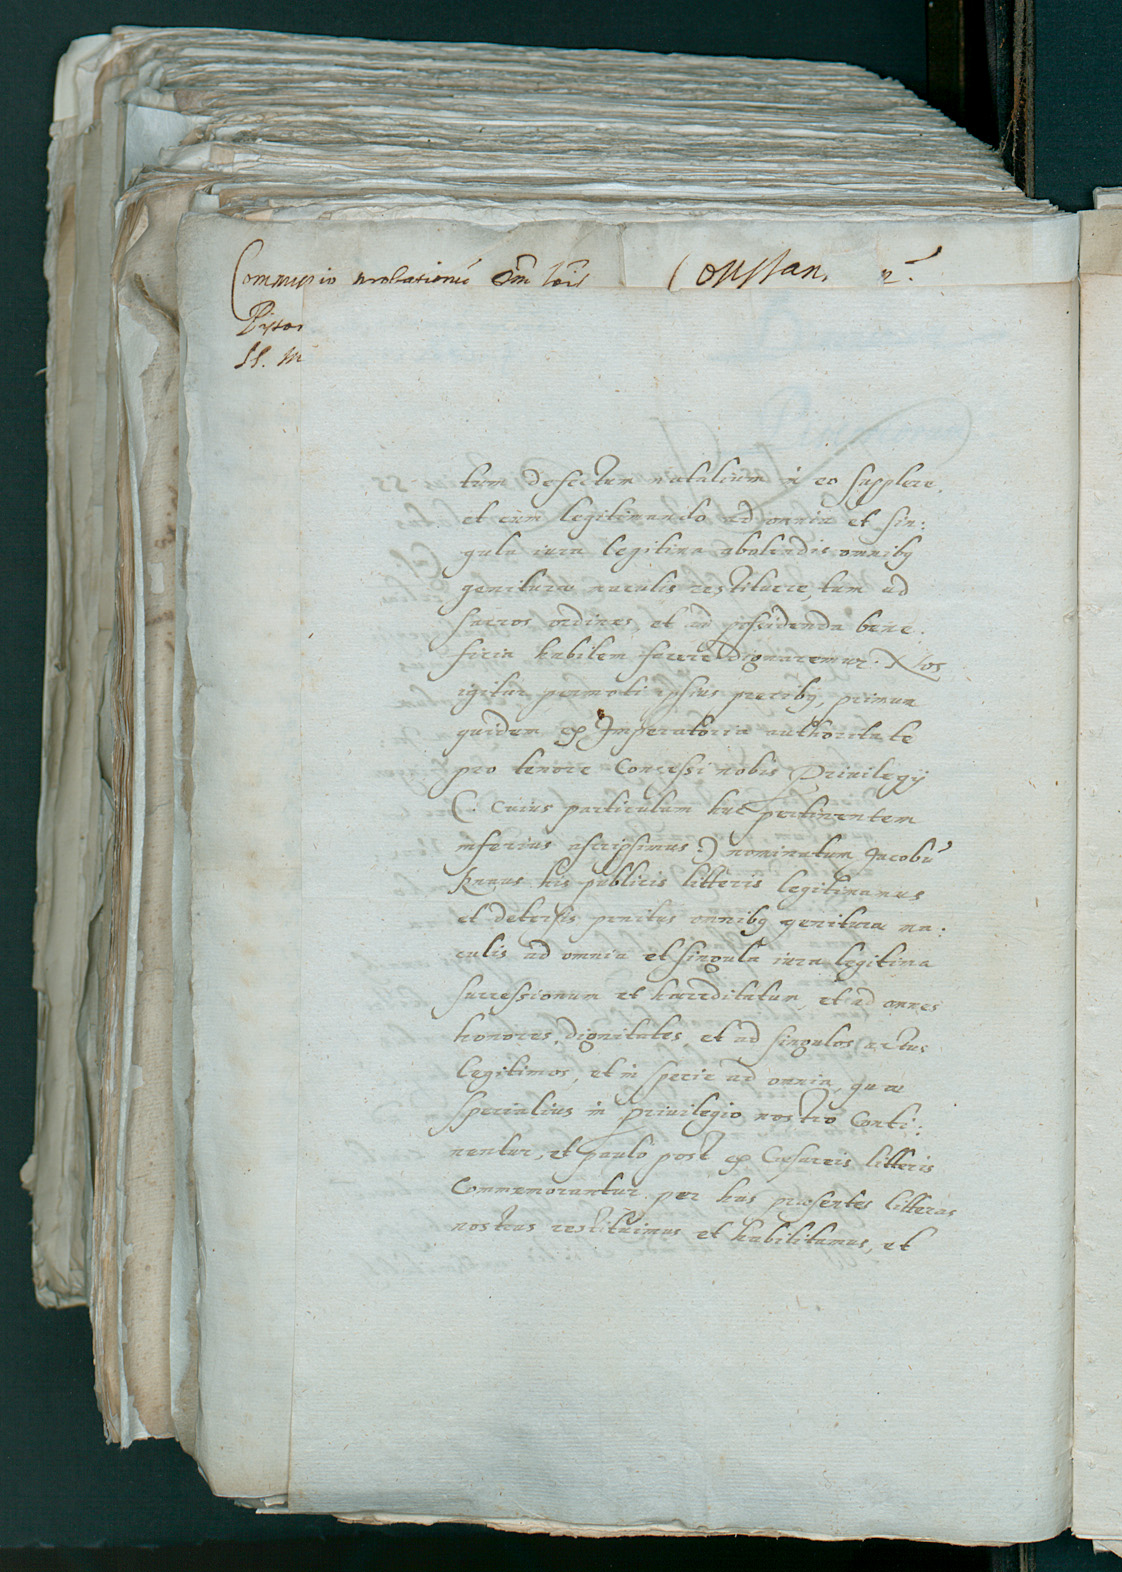 Commissio probationis
Constan. 2.
H. M
tum defectum natalium in eo supplere,
et eum legitimando ad omnia et sin:
gula iura legitima abolendis omnibꝯ
geniturae maculis restituere, tum ad
sacros ordines et ad possidenda bene:
ficia habilem facere dignaremur. Nos
igitur permoti ipsius precibꝯ, primum
quidem ex Imperatoria authoritate
pro tenore Concessi nobis Priuilegij
(: cuius particulam huc pertinentem
inferius ascripsimus :) nominatum Jacobū
Knaus his publicis litteris legitimamus
et detersis penitus omnibꝯ geniturae ma:
culis ad omnia et singula iura legitima
successionum et haereditatum, et ad omnes
honores, dignitates, et ad singulos actus
legitimos, et in specie ad omnia, quae
specialius in priuilegio nostro Conti:
nentur, et paulo post ex Cesareis litteris
Commemorantur per has praesentes litteras
nostras restituimus et habilitamus, et